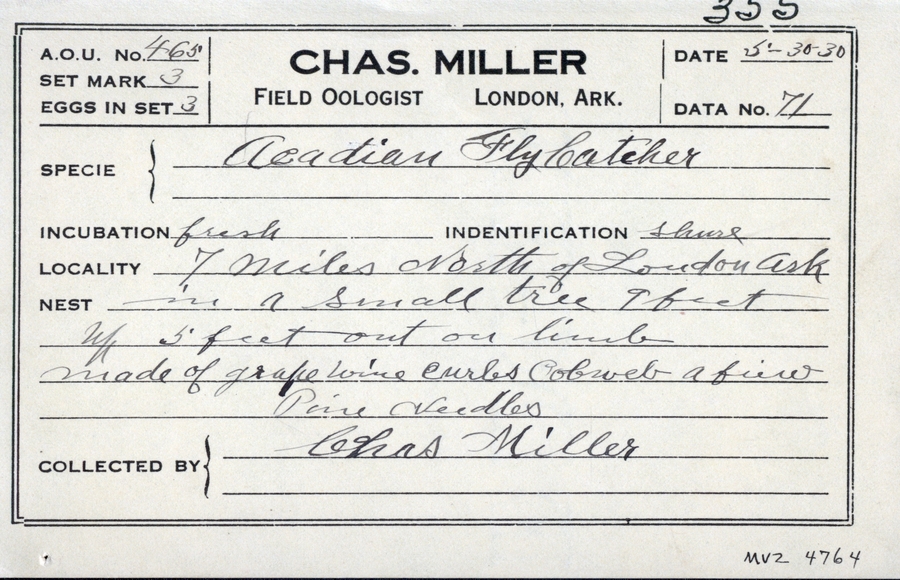 355
A.O.U. No. 465
SET MARK 3
EGGS IN SET 3
CHAS. MILLER
FIELD OOLOGIST LONDON, ARK.
DATE 5-30-30
DATA No. 71
SPECIE Acadian FlyCatcher
INCUBATION fresh INDENTIFICATION shure
LOCALITY 7 miles North of London Ark
NEST in a small tree 9 feet
up 5 feet out on limb
made of grape wine curls Cobweb a fiew
Pine Needles
COLLECTED BY Chas Miller
MVZ 4764